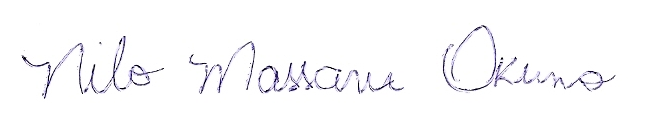 Nilo Massaru Okuno